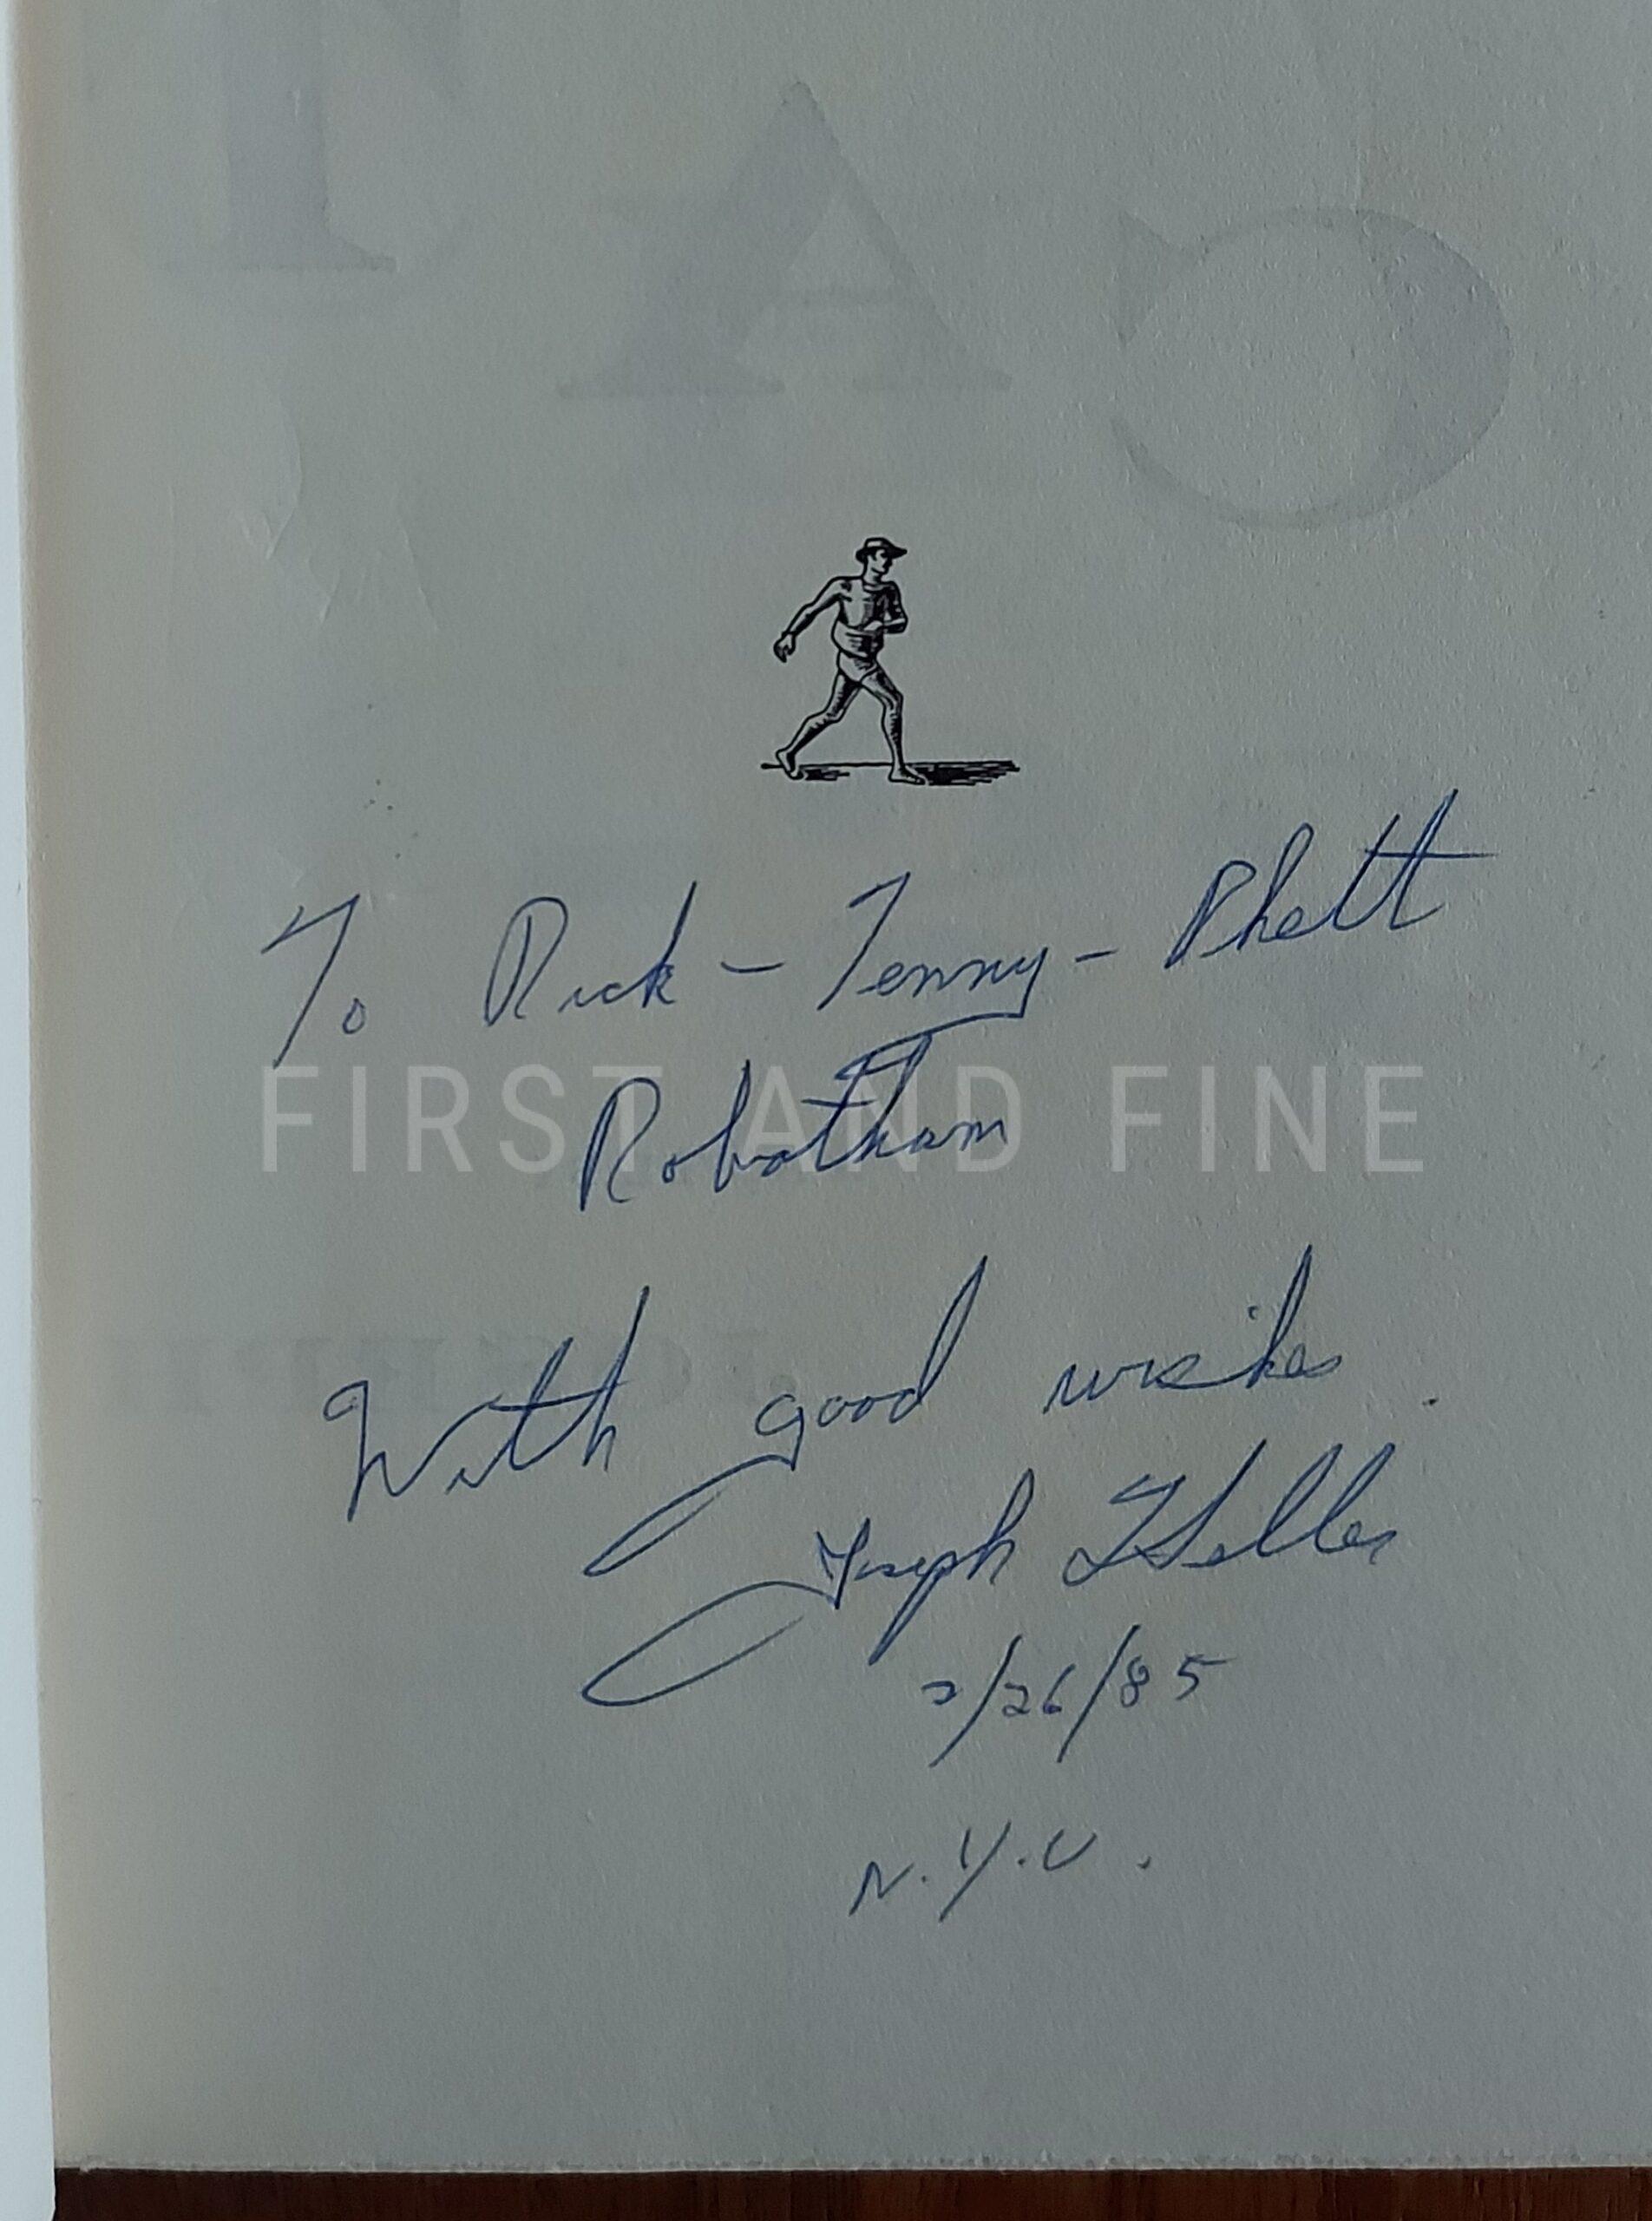 To Rick – Tenny – Rhett
Robatham
FIRST AND FINE
With good wishes.
Joseph Heller
2/26/85
N.Y.U.